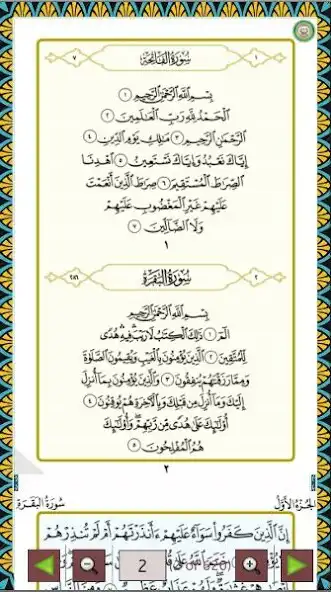 ١ سُورَةُ الفَاتِحَةِ ٧
بِسْمِ اللَّهِ الرَّحْمَٰنِ الرَّحِيمِ ١
الْحَمْدُ لِلَّهِ رَبِّ الْعَالَمِينَ ٢
الرَّحْمَٰنِ الرَّحِيمِ ٣ مَالِكِ يَوْمِ الدِّينِ ٤
إِيَّاكَ نَعْبُدُ وَإِيَّاكَ نَسْتَعِينُ ٥ اهْدِنَا
الصِّرَاطَ الْمُسْتَقِيمَ ٦ صِرَاطَ الَّذِينَ أَنْعَمْتَ
عَلَيْهِمْ غَيْرِ الْمَغْضُوبِ عَلَيْهِمْ
وَلَا الضَّالِّينَ ٧
١
٢ سُورَةُ البَقَرَةِ ٢٨٦
بِسْمِ اللَّهِ الرَّحْمَٰنِ الرَّحِيمِ
الم ١ ذَٰلِكَ الْكِتَابُ لَا رَيْبَ فِيهِ هُدًى
لِلْمُتَّقِينَ ٢ الَّذِينَ يُؤْمِنُونَ بِالْغَيْبِ وَيُقِيمُونَ الصَّلَاةَ
وَمِمَّا رَزَقْنَاهُمْ يُنْفِقُونَ ٣ وَالَّذِينَ يُؤْمِنُونَ بِمَا أُنْزِلَ
إِلَيْكَ وَمَا أُنْزِلَ مِنْ قَبْلِكَ وَبِالْآخِرَةِ هُمْ يُوقِنُونَ ٤
أُولَٰئِكَ عَلَىٰ هُدًى مِنْ رَبِّهِمْ وَأُولَٰئِكَ
هُمُ الْمُفْلِحُونَ ٥
٢
الجُزْءُ الأَوَّلُ سُورَةُ البَقَرَةِ
إِنَّ الَّذِينَ كَفَرُوا سَوَاءٌ عَلَيْهِمْ ءَأَنْذَرْتَهُمْ أَمْ لَمْ تُنْذِرْهُمْ
2